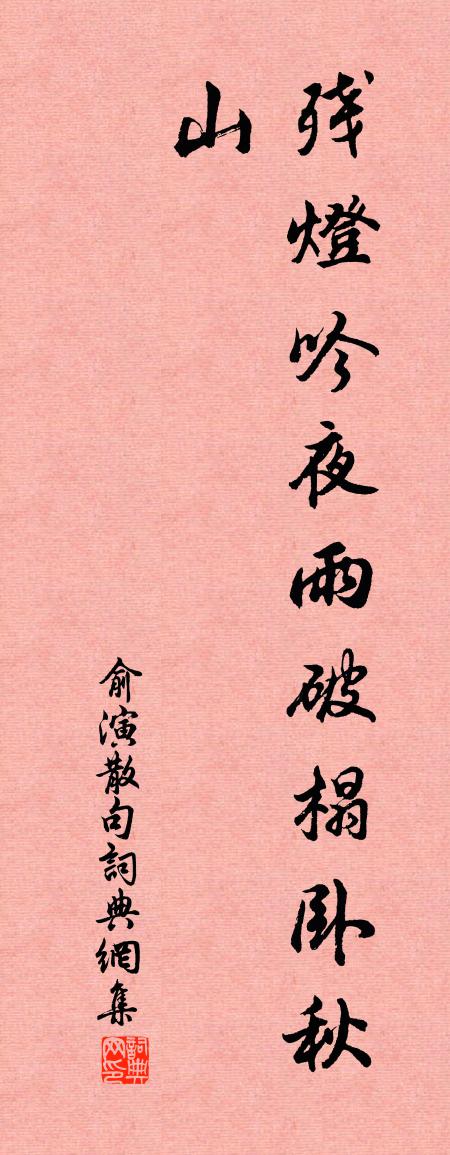 残燈吟夜雨破榻卧秋
山
俞演散句詞典網集
詞典网印